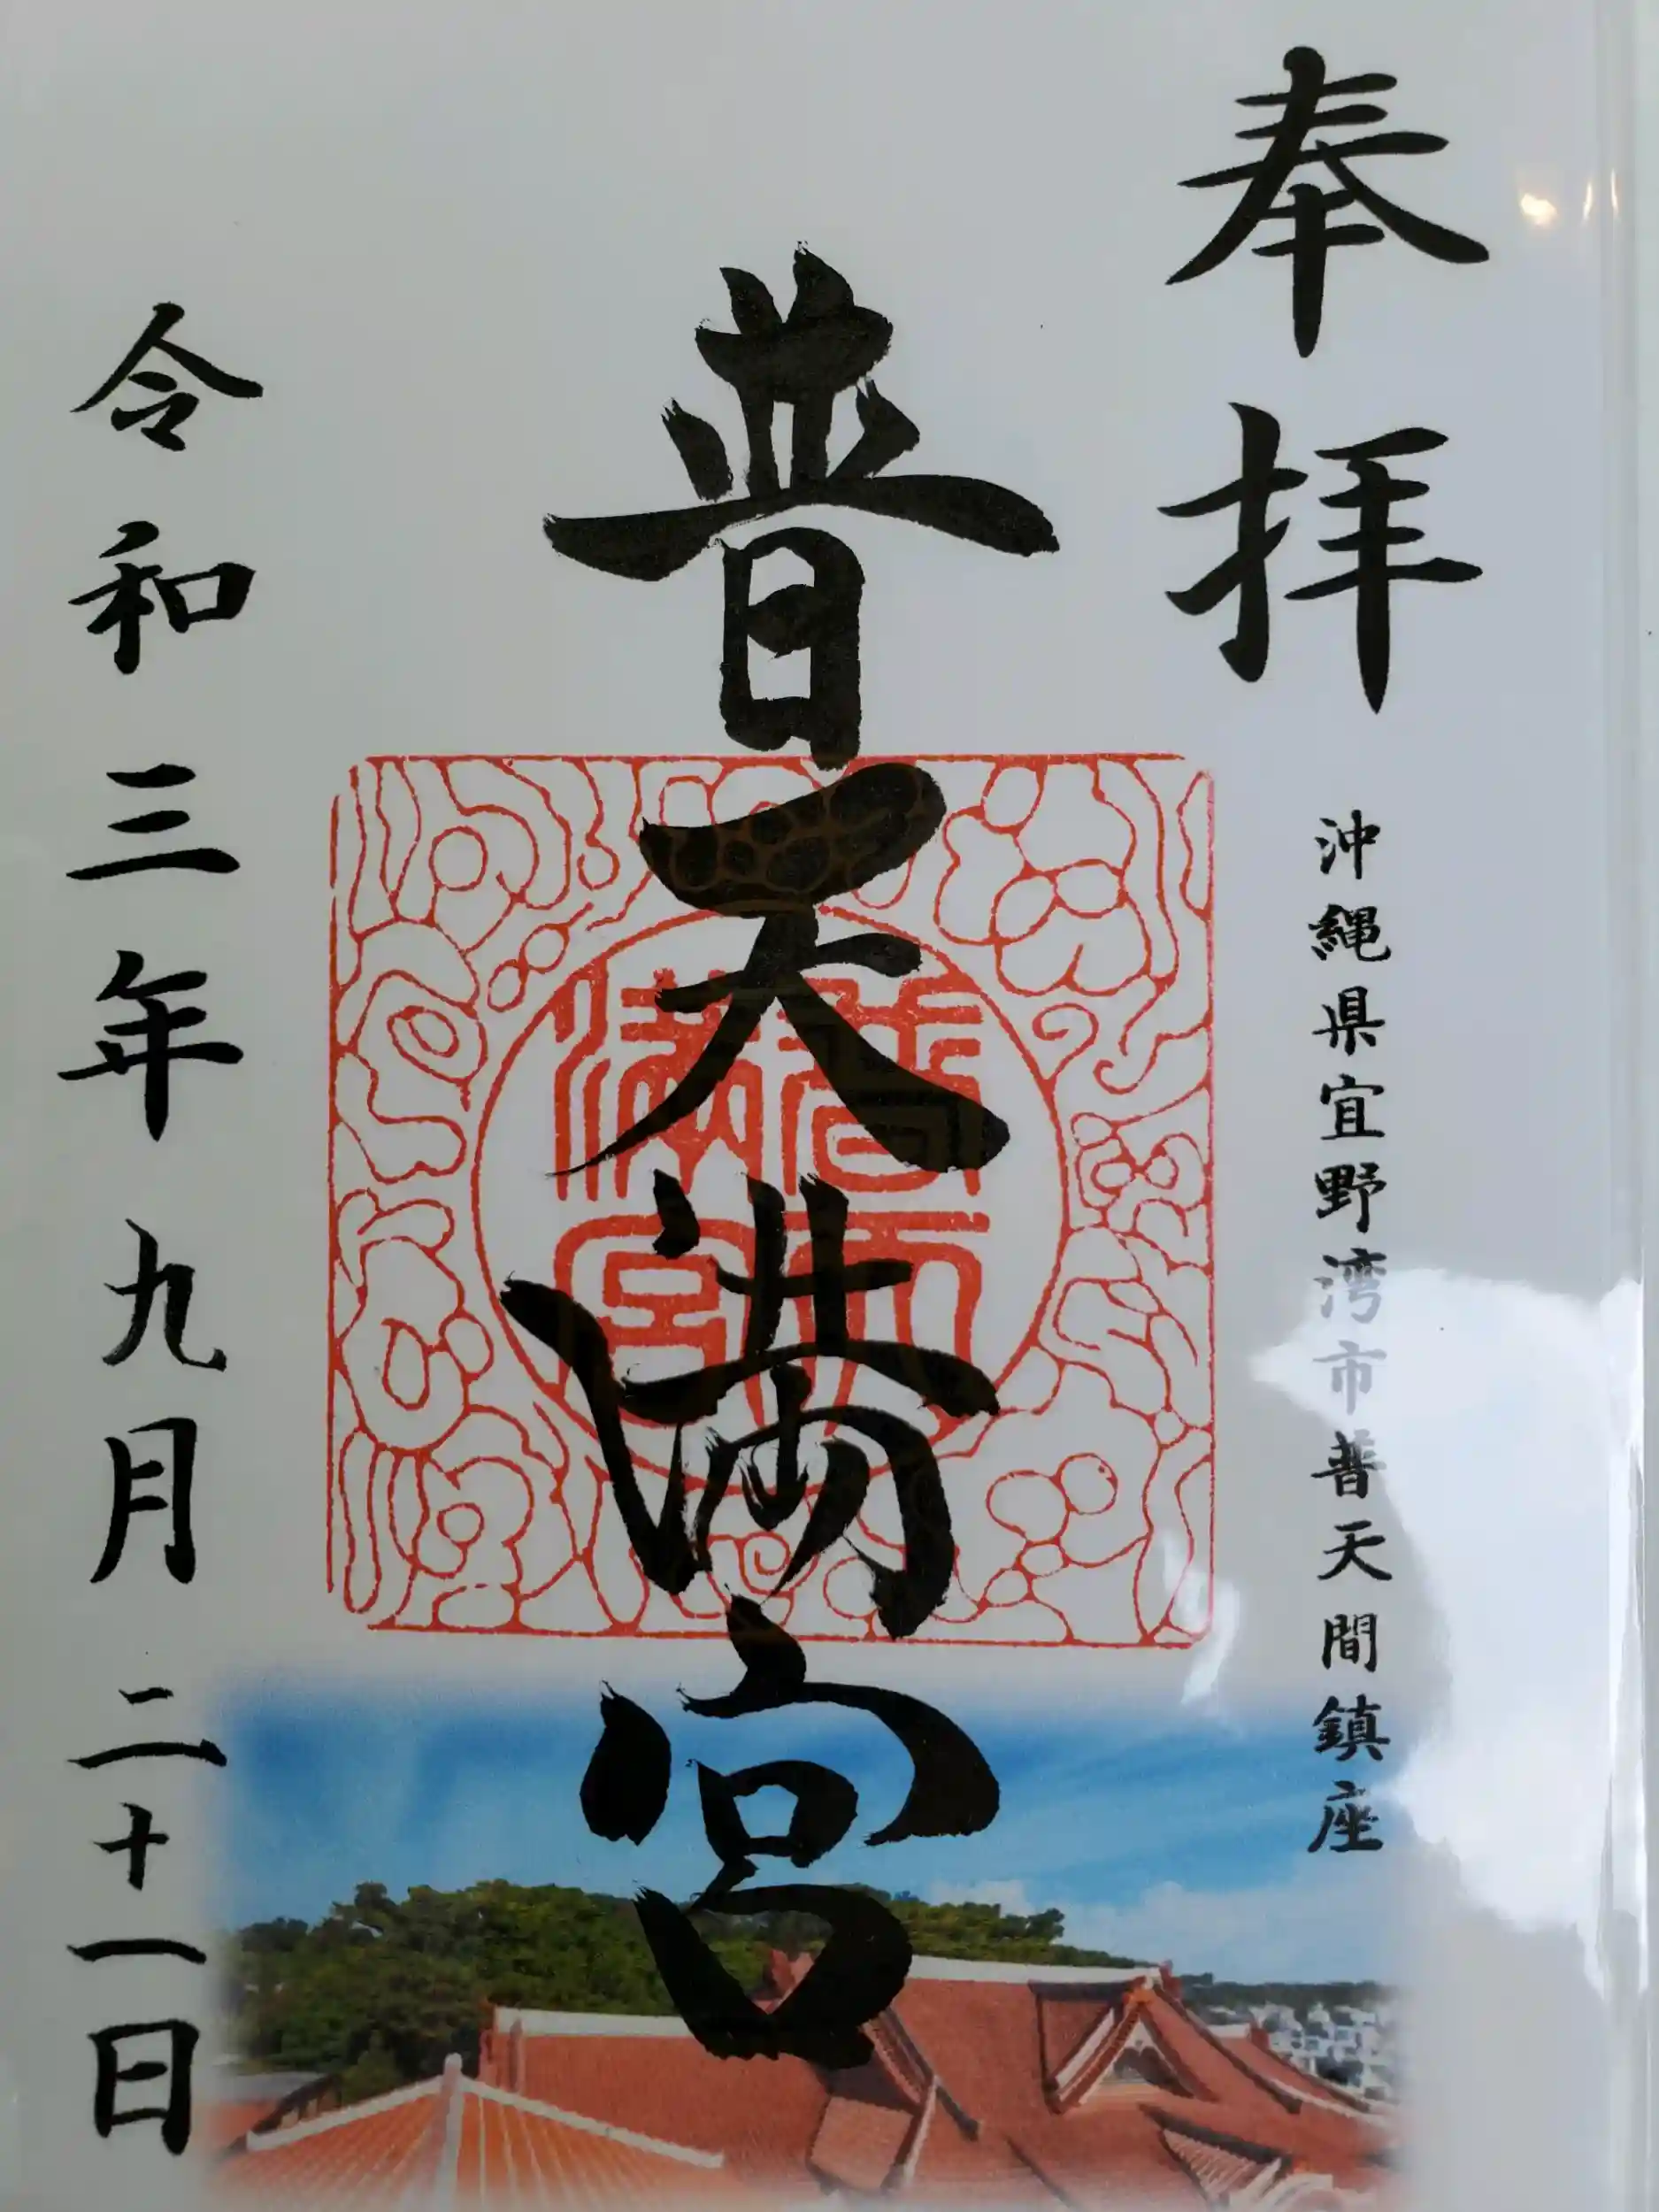 奉拝
沖縄県宜野湾市普天間鎮座
普天満宮
普天満宮
令和三年九月二十一日